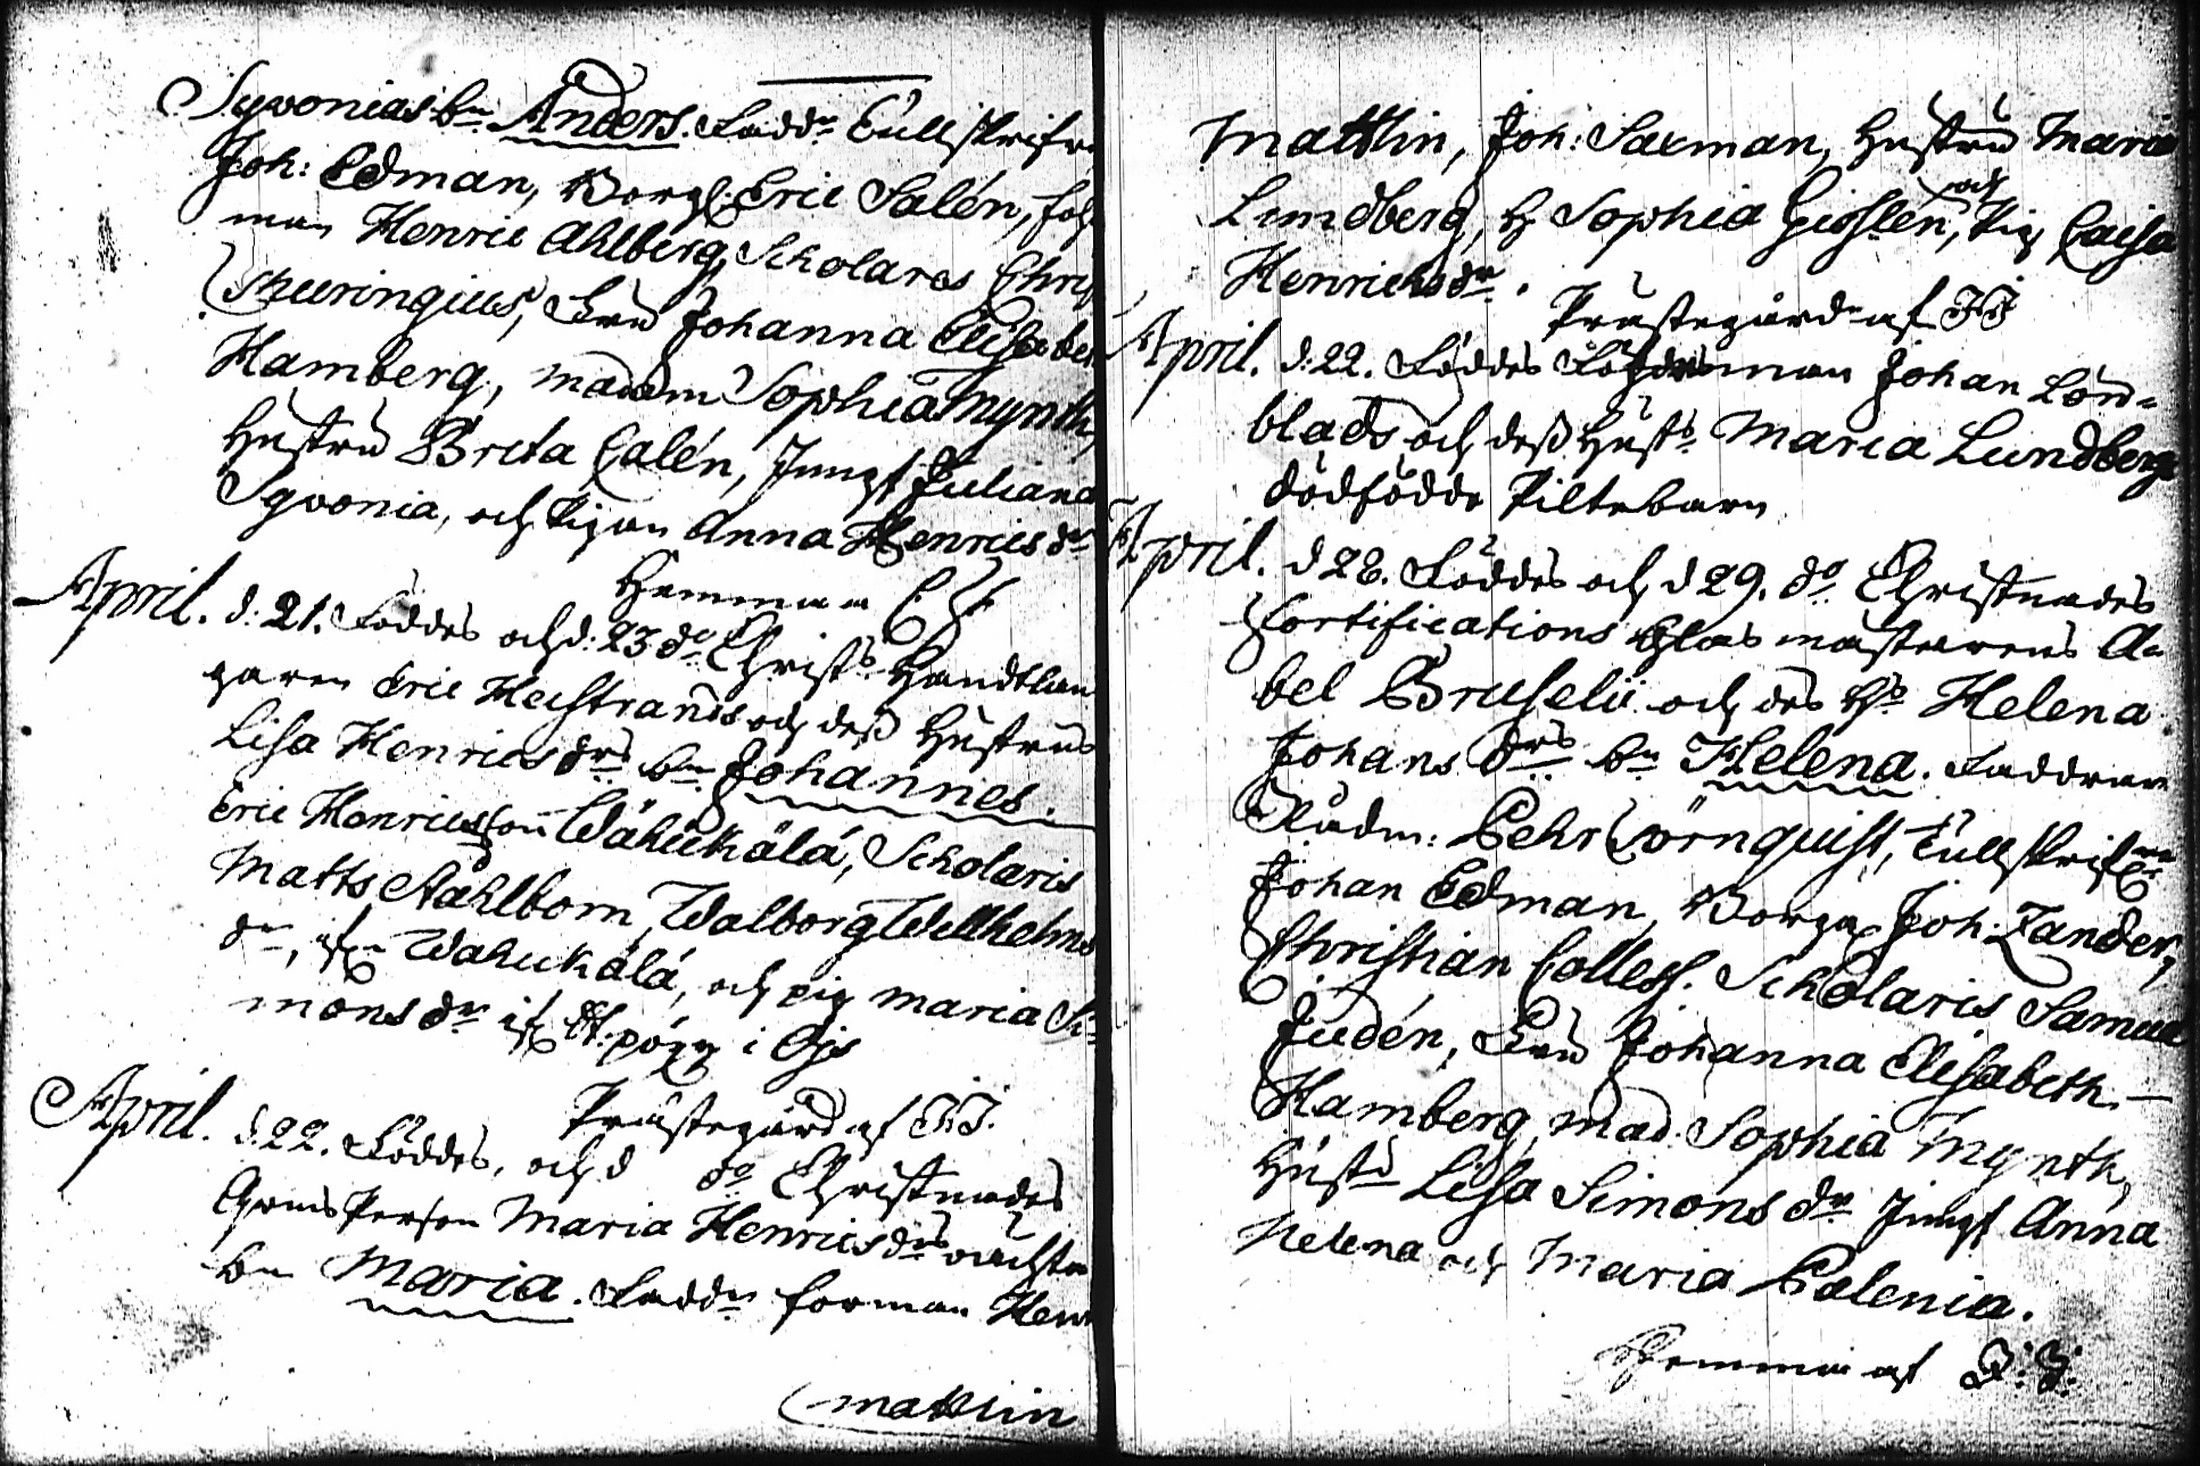 Sgvonias bn Anders. Faddr Tullskrifvn
Joh: Edman, Borg: Eric Salén, for
man Henric Ahlberg, Scholares Chris
Thuringius, Fru Johanna Elisabet
Hamberg, madam Sophia Mynth,
Hustru Brita Calén, Jungf Juliana
Sgvonia, och Pigan Anna Henricsdr
Hemma
April. d: 21. Föddes och d: 23 do Christs Handtlan
garen Eric Heistrands och dess Hustrus
Lisa Henricsdrs bn Johannes.
Eric Henricsson Wähäkälä, Scholaris
Matts Stahlbom, Walborg Willhelms
dr, Wähäkälä, och pig Maria Si
monsdr i
Prästegård af J:J.
April. d. 22. Föddes, och d do Christnades
Qvins Person Maria Henricsdrs oächta
bn Maria. Faddr forman Henr
mattlin
Mattlin, Joh: Saxman, Hustru Maria
Lundberg, H Sophia Gisslén, och Pig Caisa
Henricsdr.
Prästegård af JJ
April. d. 22. Föddes man Johan Lönn=
blads och dess Hust Maria Lundbergs
dödfödde Piltebarn
April. d 28. Föddes och d 29. do Christnades
Fortifications Glas mästarens A
bel Bruselii och des Hs Helena
Johans drs bn Helena. Faddrar
Rådm: Pehr Törnquist, Tullskrifvn
Johan Edman, Borga Joh: Zander,
Christian Colless. Scholaris Samuel
Judén, Fru Johanna Elisabeth
Hamberg, mad: Sophia Mynth,
Hust Lisa Simons dr Jungf Anna
Helena och Maria Polenia.
Hemma af J:J: